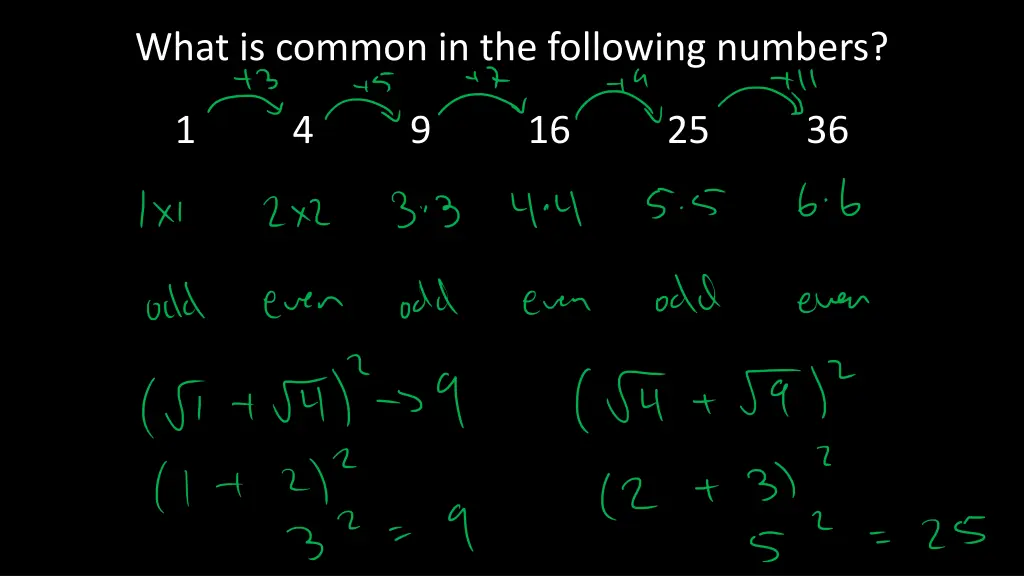 What is common in the following numbers?
+3 +5 +7 +9 +11
1 4 9 16 25 36
1x1 2x2 3·3 4·4 5·5 6·6
odd even odd even odd even
(√1 + √4)² → 9 (√4 + √9)²
(1 + 2)² (2 + 3)²
3² = 9 5² = 25